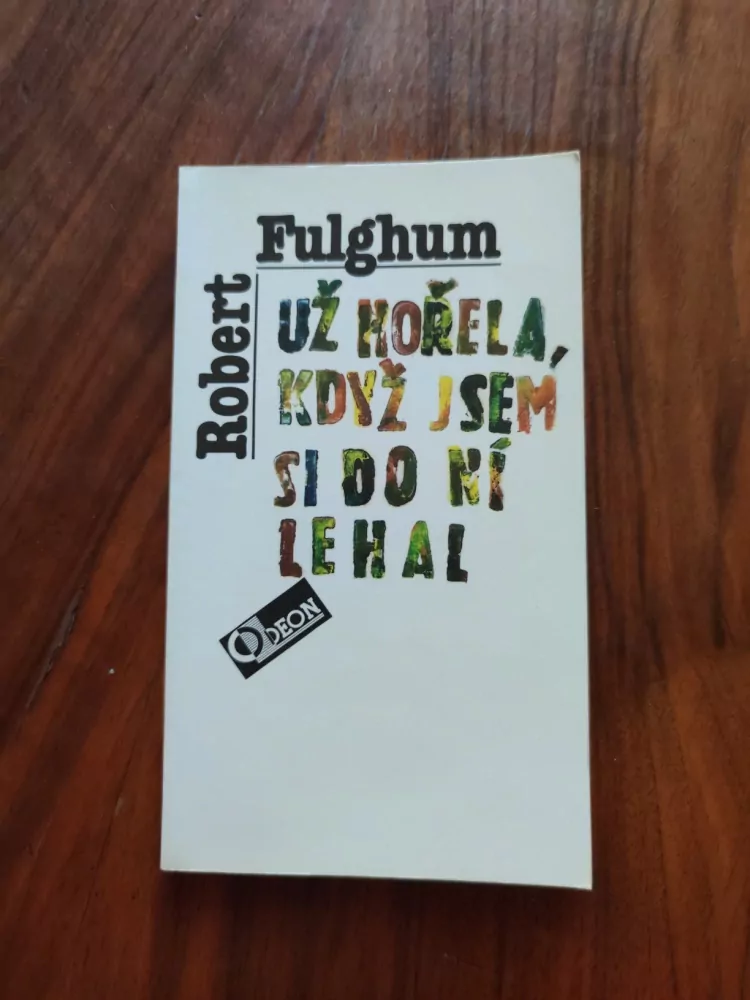 Robert
Fulghum
UŽ HOŘELA,
KDYŽ JSEM
SI DO NÍ
LEHAL
ODEON